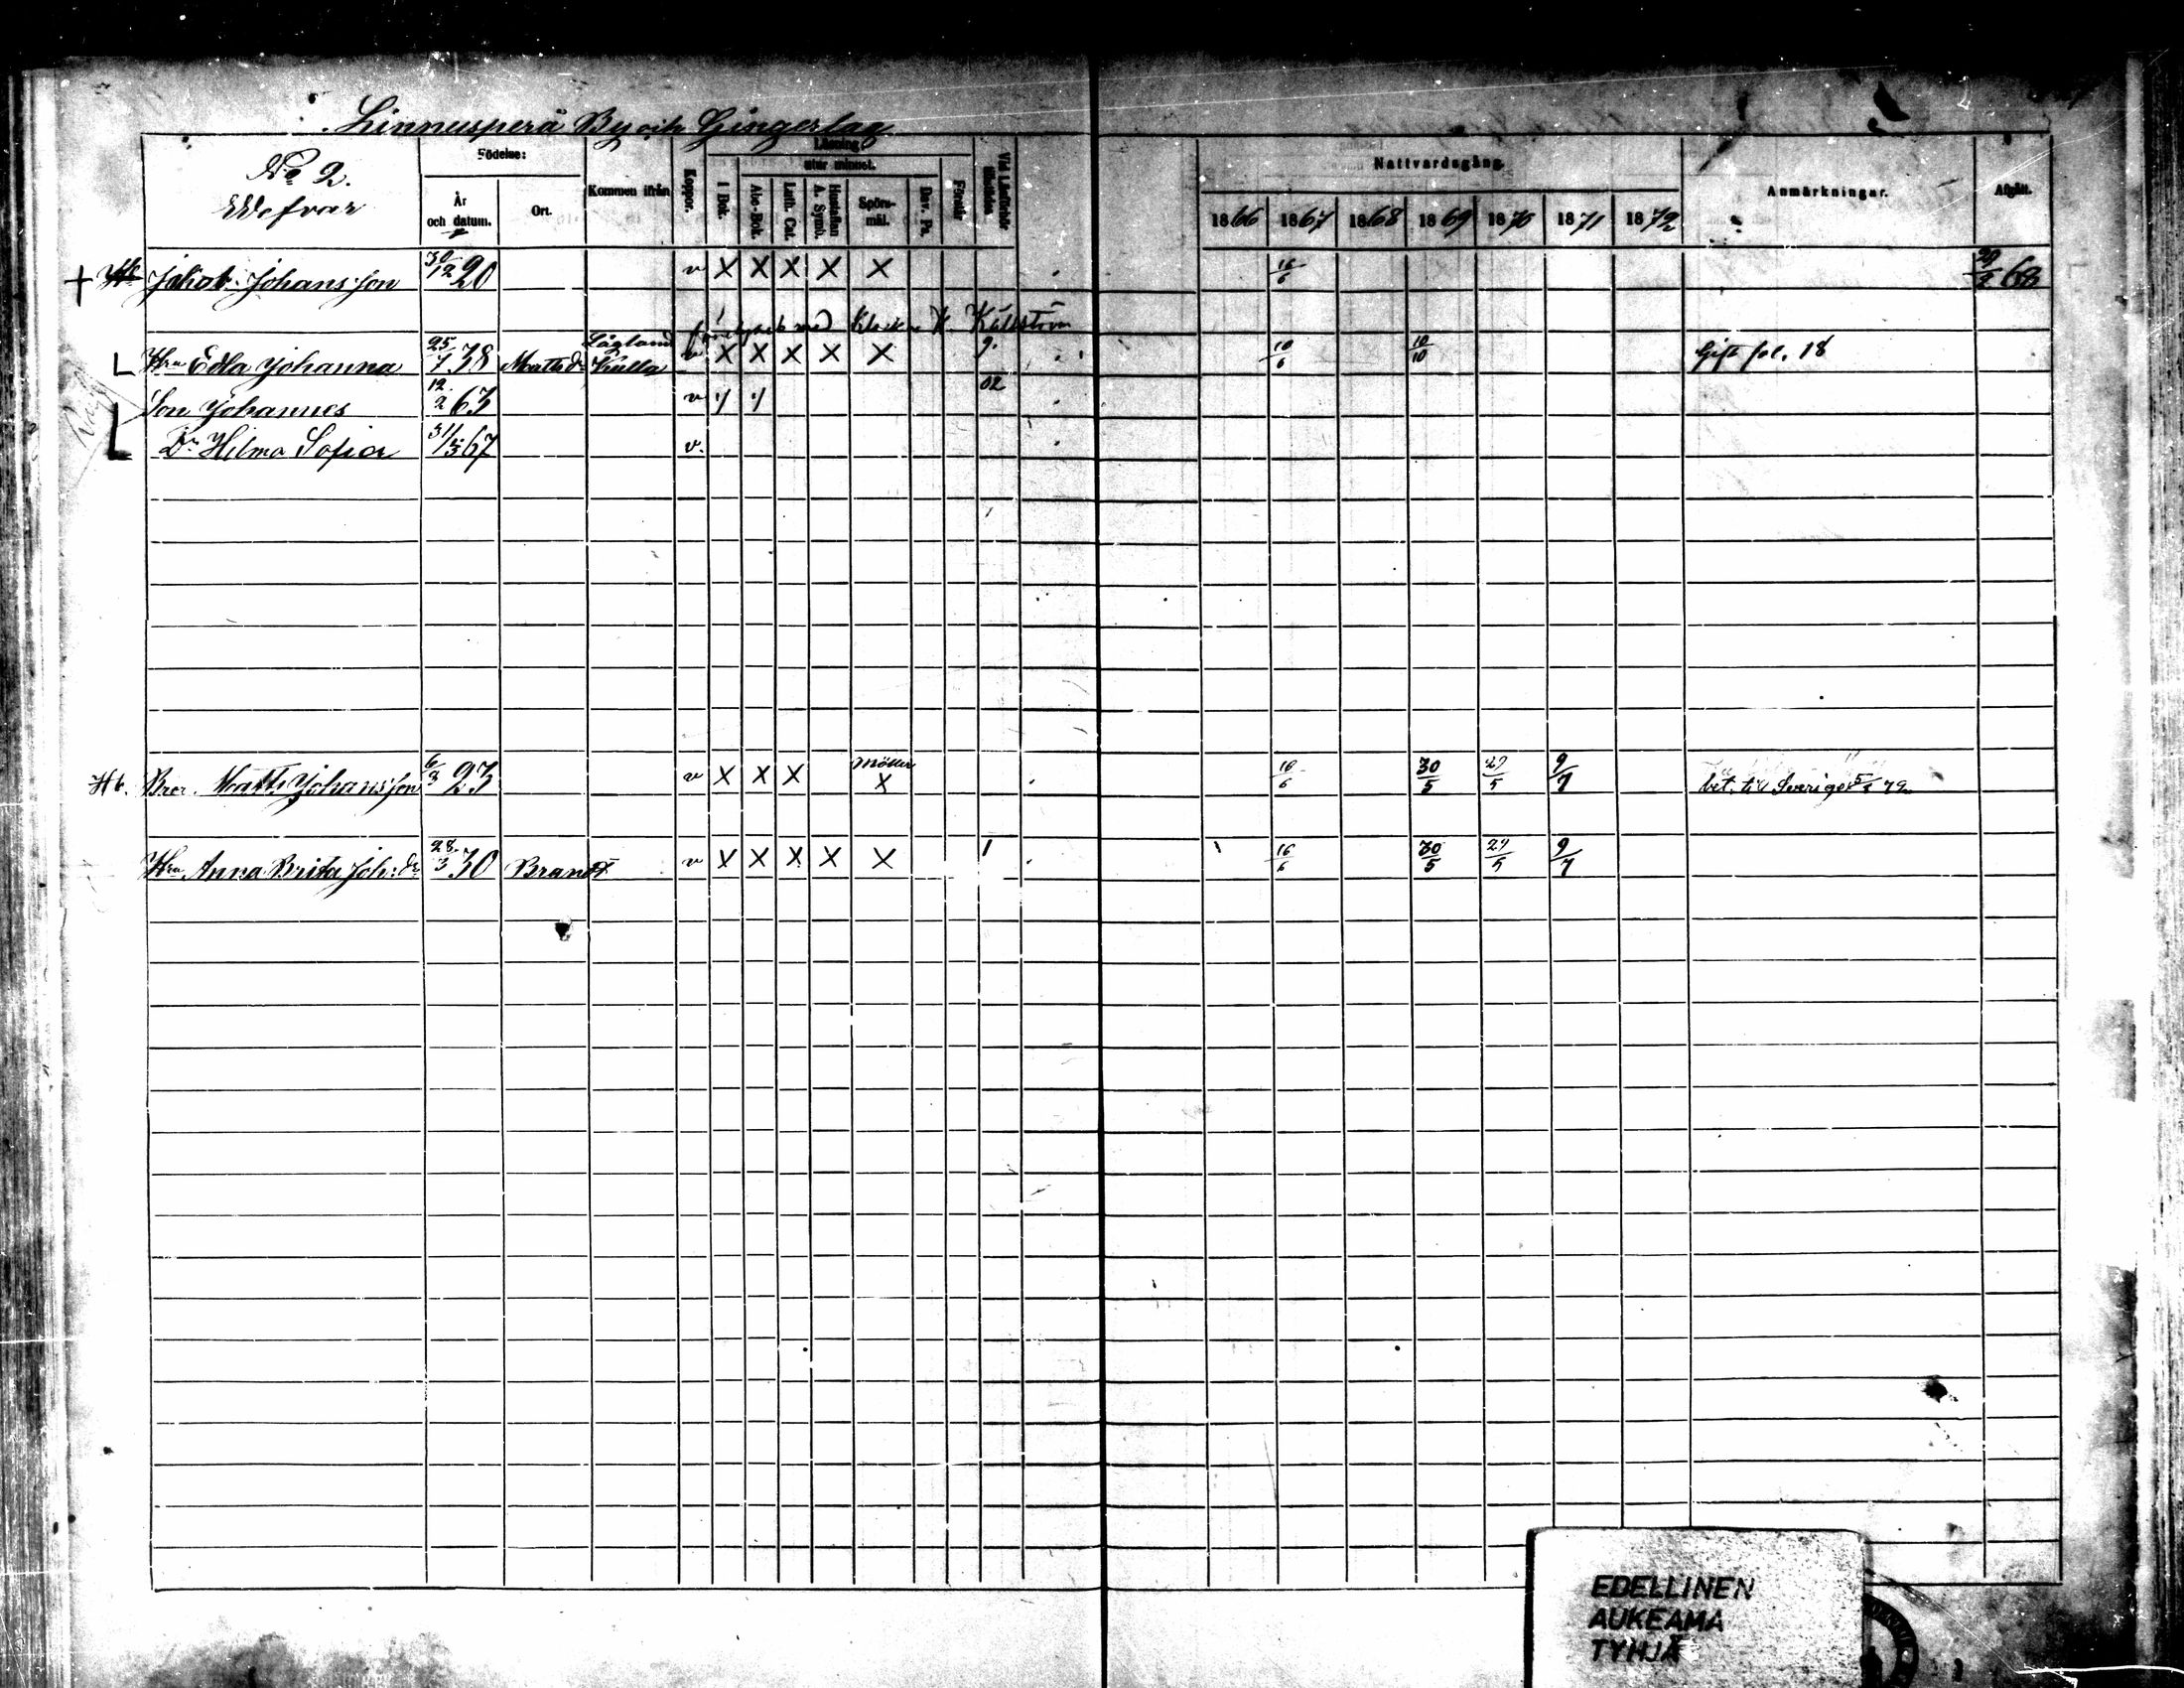 Linnusperä By och Gingerlag
No 2.
Födelse:
År och datum.
Ort.
Kommen ifrån
Koppor.
Läsning
utur minnet.
I Bok.
Abc-Bok.
Luth. Cat.
Hustaflan A. Symb.
Spörs-mål.
Dav. Ps.
Förstår
Nattvardsgång.
1866 1867 1868 1869 1870 1871 1872
Anmärkningar.
Afgått.
+ Jakob Johansson 30/12 20 v X X X X X 16/6 68
med Källström
Hu Edla Johanna 25/7 38 Lågland Kulla v X X X X X 9. 10/6 10/10 Gift fol. 18
Son Johannes 12/2 63 v 02
Dr Hilma Sofia 31/5 67 v.
Hb. Bror Matts Johansson 6/3 23 v X X X X 16/6 30/5 29/5 9/7 bet. til Sverige 72
Hu Anna Brita Joh: dr 28/3 30 Brandt v X X X X X 1 16/6 30/5 29/5 9/7
EDELLINEN
AUKEAMA
TYHJÄ